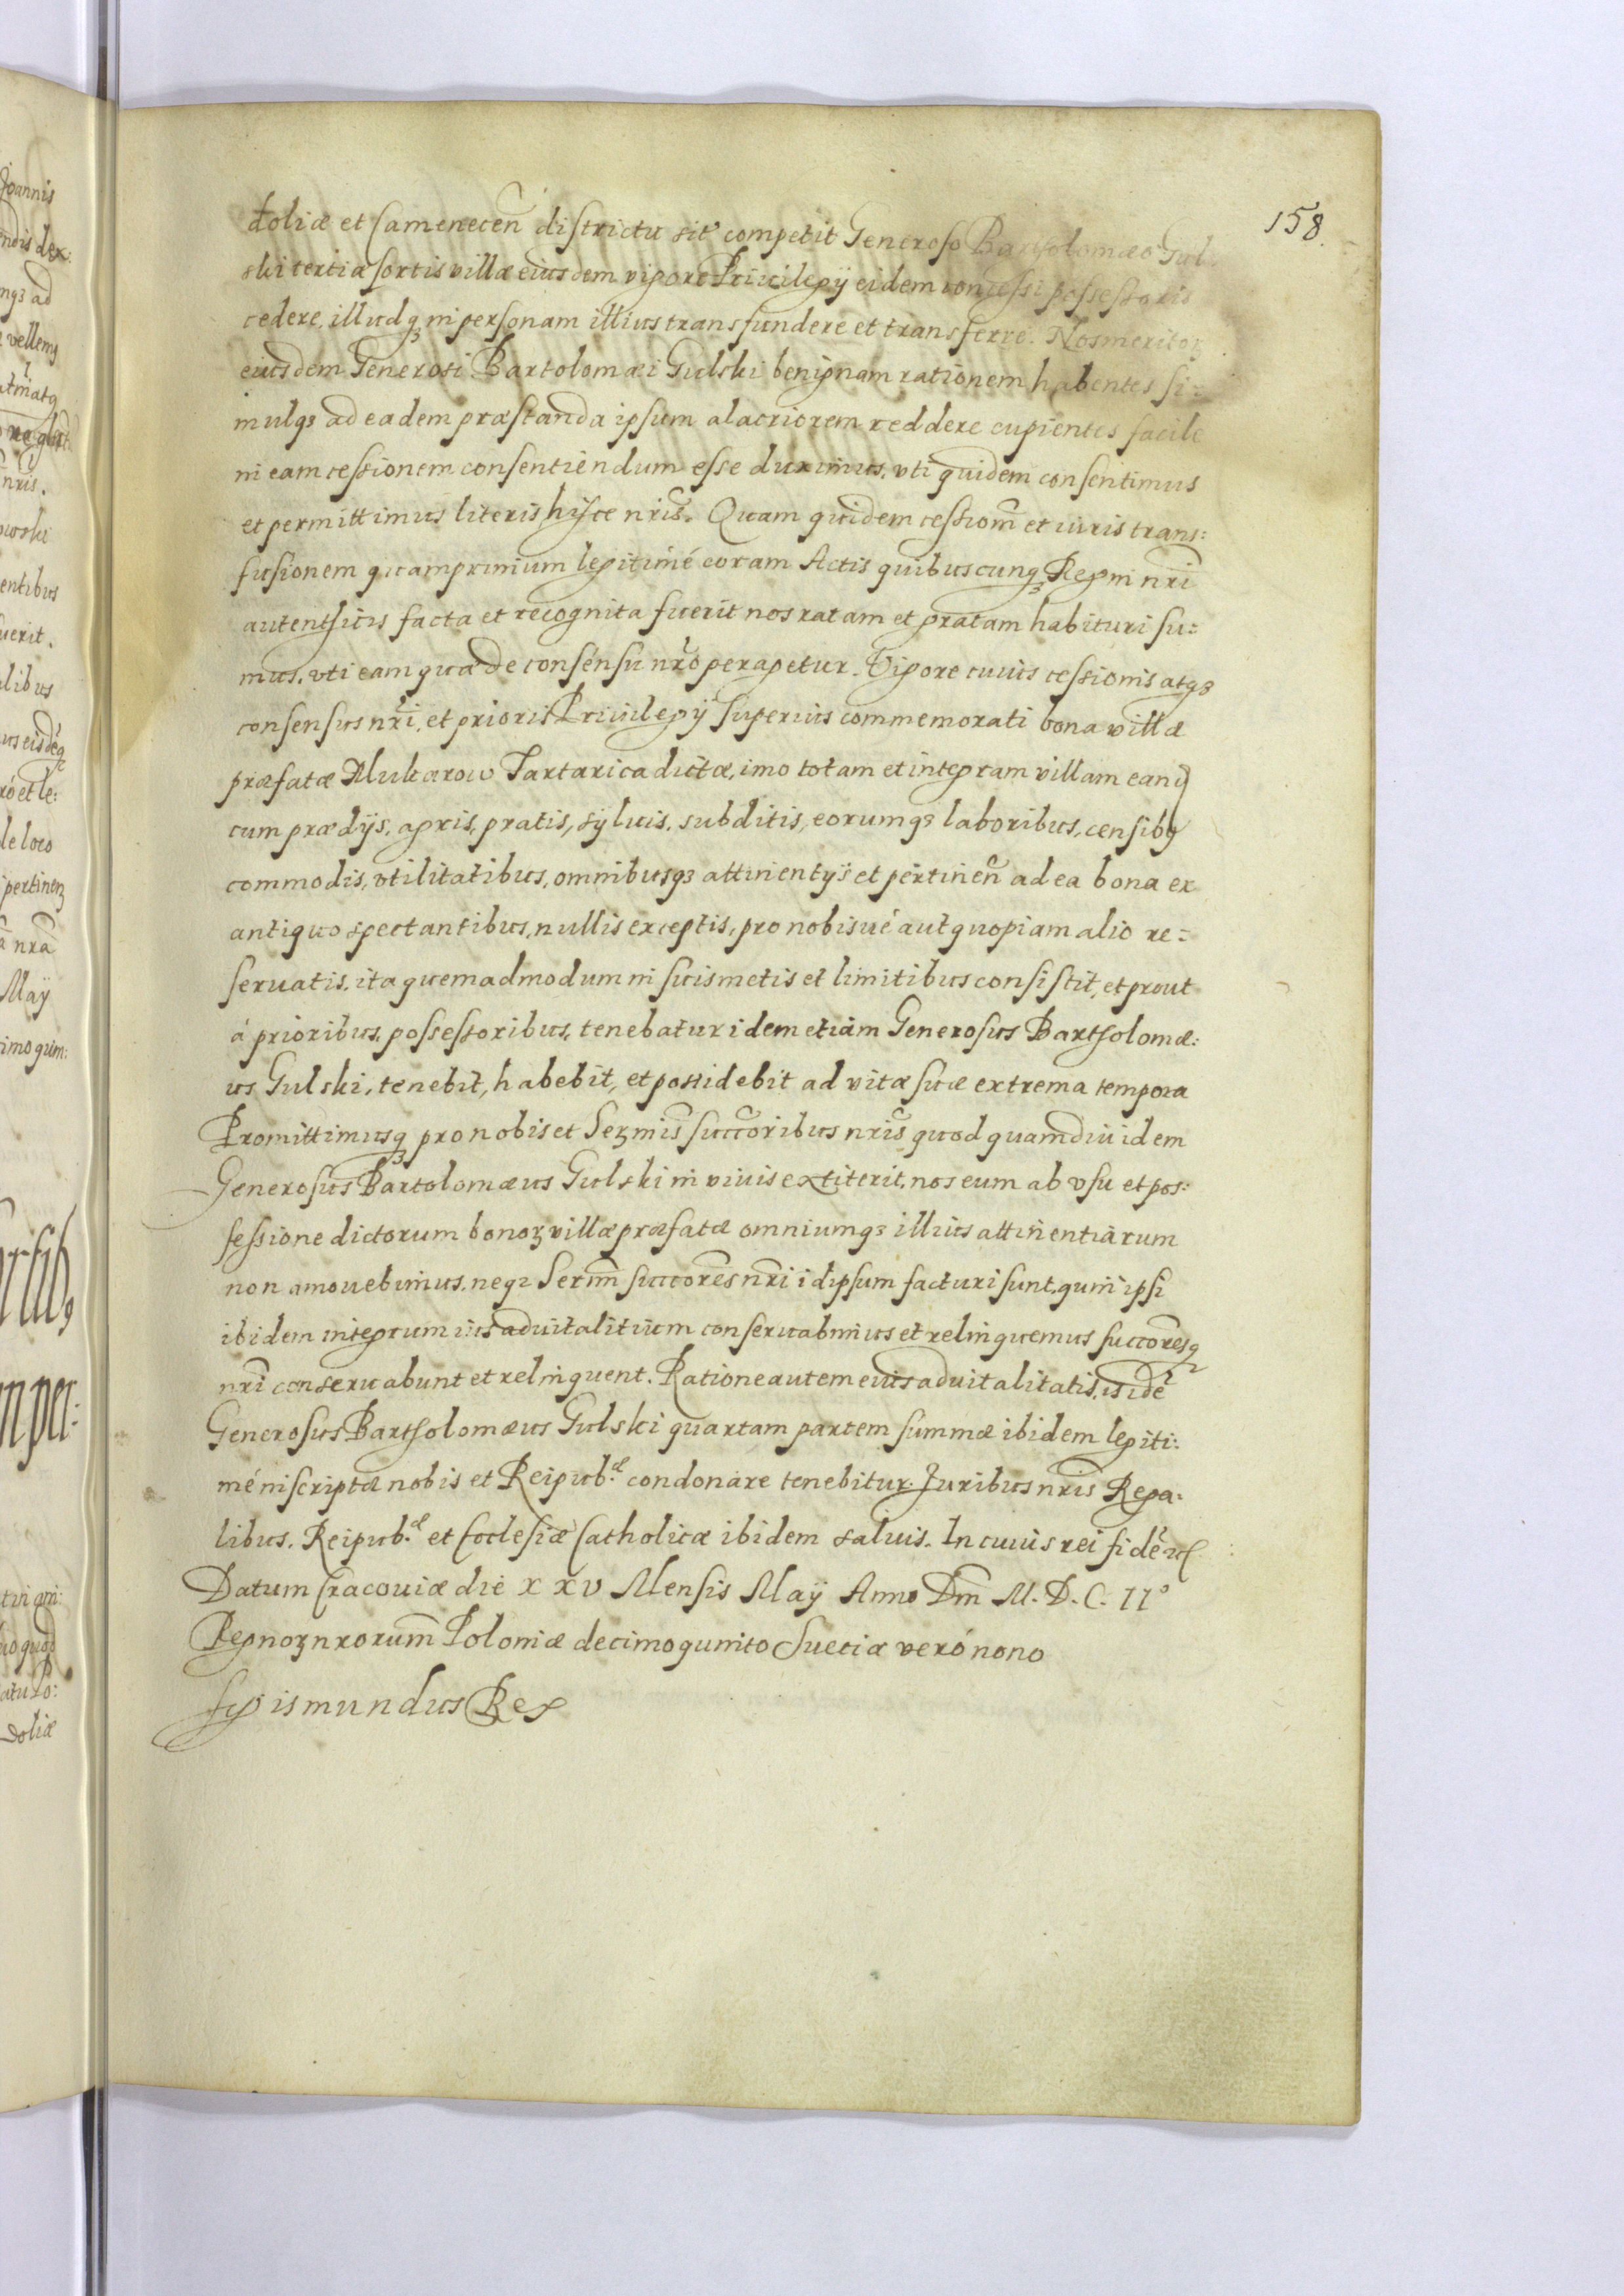 158.
doliæ et Camenecen̄ districtu sit͛ competit Generoso Bartholomæo Gul-
ski tertiæ sortis villæ eiusdem vigore Priuilegÿ eidem concessi possessoris
cedere, illudqꝫ in personam illius transfundere et transferre. Nos meritoꝝ
eiusdem Generosi Bartolomæi Gulski benignam rationem habentes si:
mulqꝫ ad eadem præstanda ipsum alacriorem reddere cupientes facile
in eam cessionem consentiendum esse duximus, vti quidem consentimus
et permittimus literis hisce nr̄is. Quam quidem cession̄e et iuris trans:
fusionem quamprimum legitimé coram Actis quibuscunqꝫ Regni nr̄i
autenthicis facta et recognita fuerit nos ratam et gratam habituri su:
mus, vti eam quæ de consensu nr̄o peragetur. Vigore cuius cessionis atqꝫ
consensus nr̄i, et prioris Priuilegÿ superius commemorati bona villæ
præfatæ Mukarow Tartarica dictæ, imo totam et integram villam eand̄
cum prædÿs, agris, pratis, syluis, subditis, eorumqꝫ laboribus, censibꝰ
commodis, vtilitatibus, omnibusqꝫ attinentÿs et pertinen̄ ad ea bona ex
antiquo spectantibus, nullis exceptis, pro nobisué aut quopiam alio re:
seruatis, ita quemadmodum in suis metis et limitibus consistit, et prout
á prioribus, possessoribus, tenebatur idem etiam Generosus Bartholomæ:
us Gulski, tenebit, habebit, et possidebit ad vitæ suæ extrema tempora
Promittimusqꝫ pro nobis et Seꝛmis̄ succ̄oribus nr̄is quod quamdiu idem
Generosus Bartolomæus Gulski in viuis extiterit, nos eum ab vsu et pos:
sessione dictorum bonoꝝ villæ præfatæ omniumqꝫ illius attinentiarum
non amouebimus, neqꝫ Serm̄i succores̄ nr̄i idipsum facturi sunt, quin ipsi
ibidem integrum ius aduitalitium conseruabimus et relinquemus succores̄qꝫ
nr̄i conseruabunt et relinquent. Ratione autem eius aduitalitatis, is idē
Generosus Bartholomæus Gulski quartam partem summæ ibidem legiti:
mé inscriptæ nobis et Reipub.æ condonare tenebitur. Juribus nr̄is Rega:
libus, Reipub.æ et Ecclesiæ Catholicæ ibidem saluis. In cuius rei fidē etc
Datum Cracouiæ die XXV Mensis Maÿ Anno Dm̄ M.D.C.II°
Regnoꝝ nrorum̄ Poloniæ decimoquinto Sueciæ veró nono
Sigismundus Rex